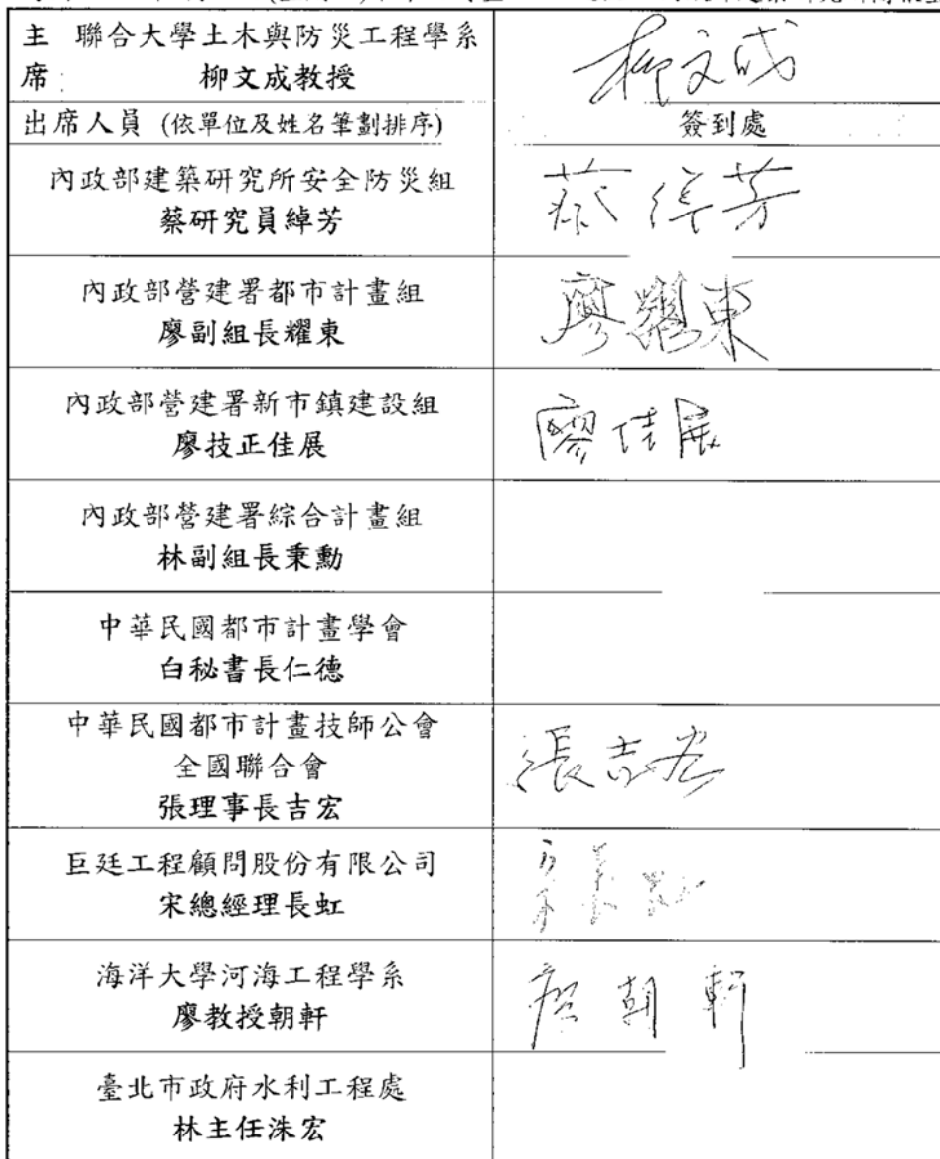 主 聯合大學土木與防災工程學系
席: 柳文成教授
柳文成
出席人員 (依單位及姓名筆劃排序)
簽到處
內政部建築研究所安全防災組
蔡研究員綽芳
蔡綽芳
內政部營建署都市計畫組
廖副組長耀東
廖耀東
內政部營建署新市鎮建設組
廖技正佳展
廖佳展
內政部營建署綜合計畫組
林副組長秉勳
中華民國都市計畫學會
白秘書長仁德
中華民國都市計畫技師公會
全國聯合會
張理事長吉宏
張吉宏
巨廷工程顧問股份有限公司
宋總經理長虹
宋長虹
海洋大學河海工程學系
廖教授朝軒
廖朝軒
臺北市政府水利工程處
林主任洙宏